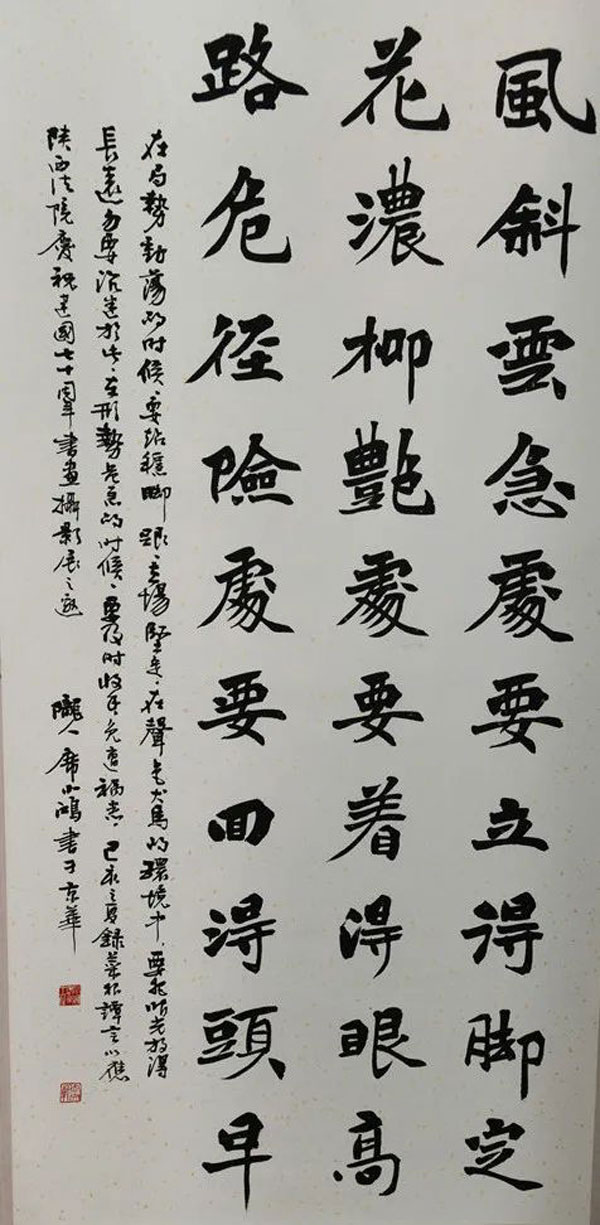 風斜雲急處要立得脚定
花濃柳艷處要着得眼高
路危径險處要回得頭早
在局勢動蕩的时候、要站穩脚跟、立場堅定、在聲色犬馬的環境中、要把眼光放得
長遠勿要沉迷於此、在形勢危急的时候、要及时收手免遭禍患、己亥之夏録菜根譚言以應
陕西法院慶祝建國七十周年書畫攝影展之邀 隴人席小鴻書于京華